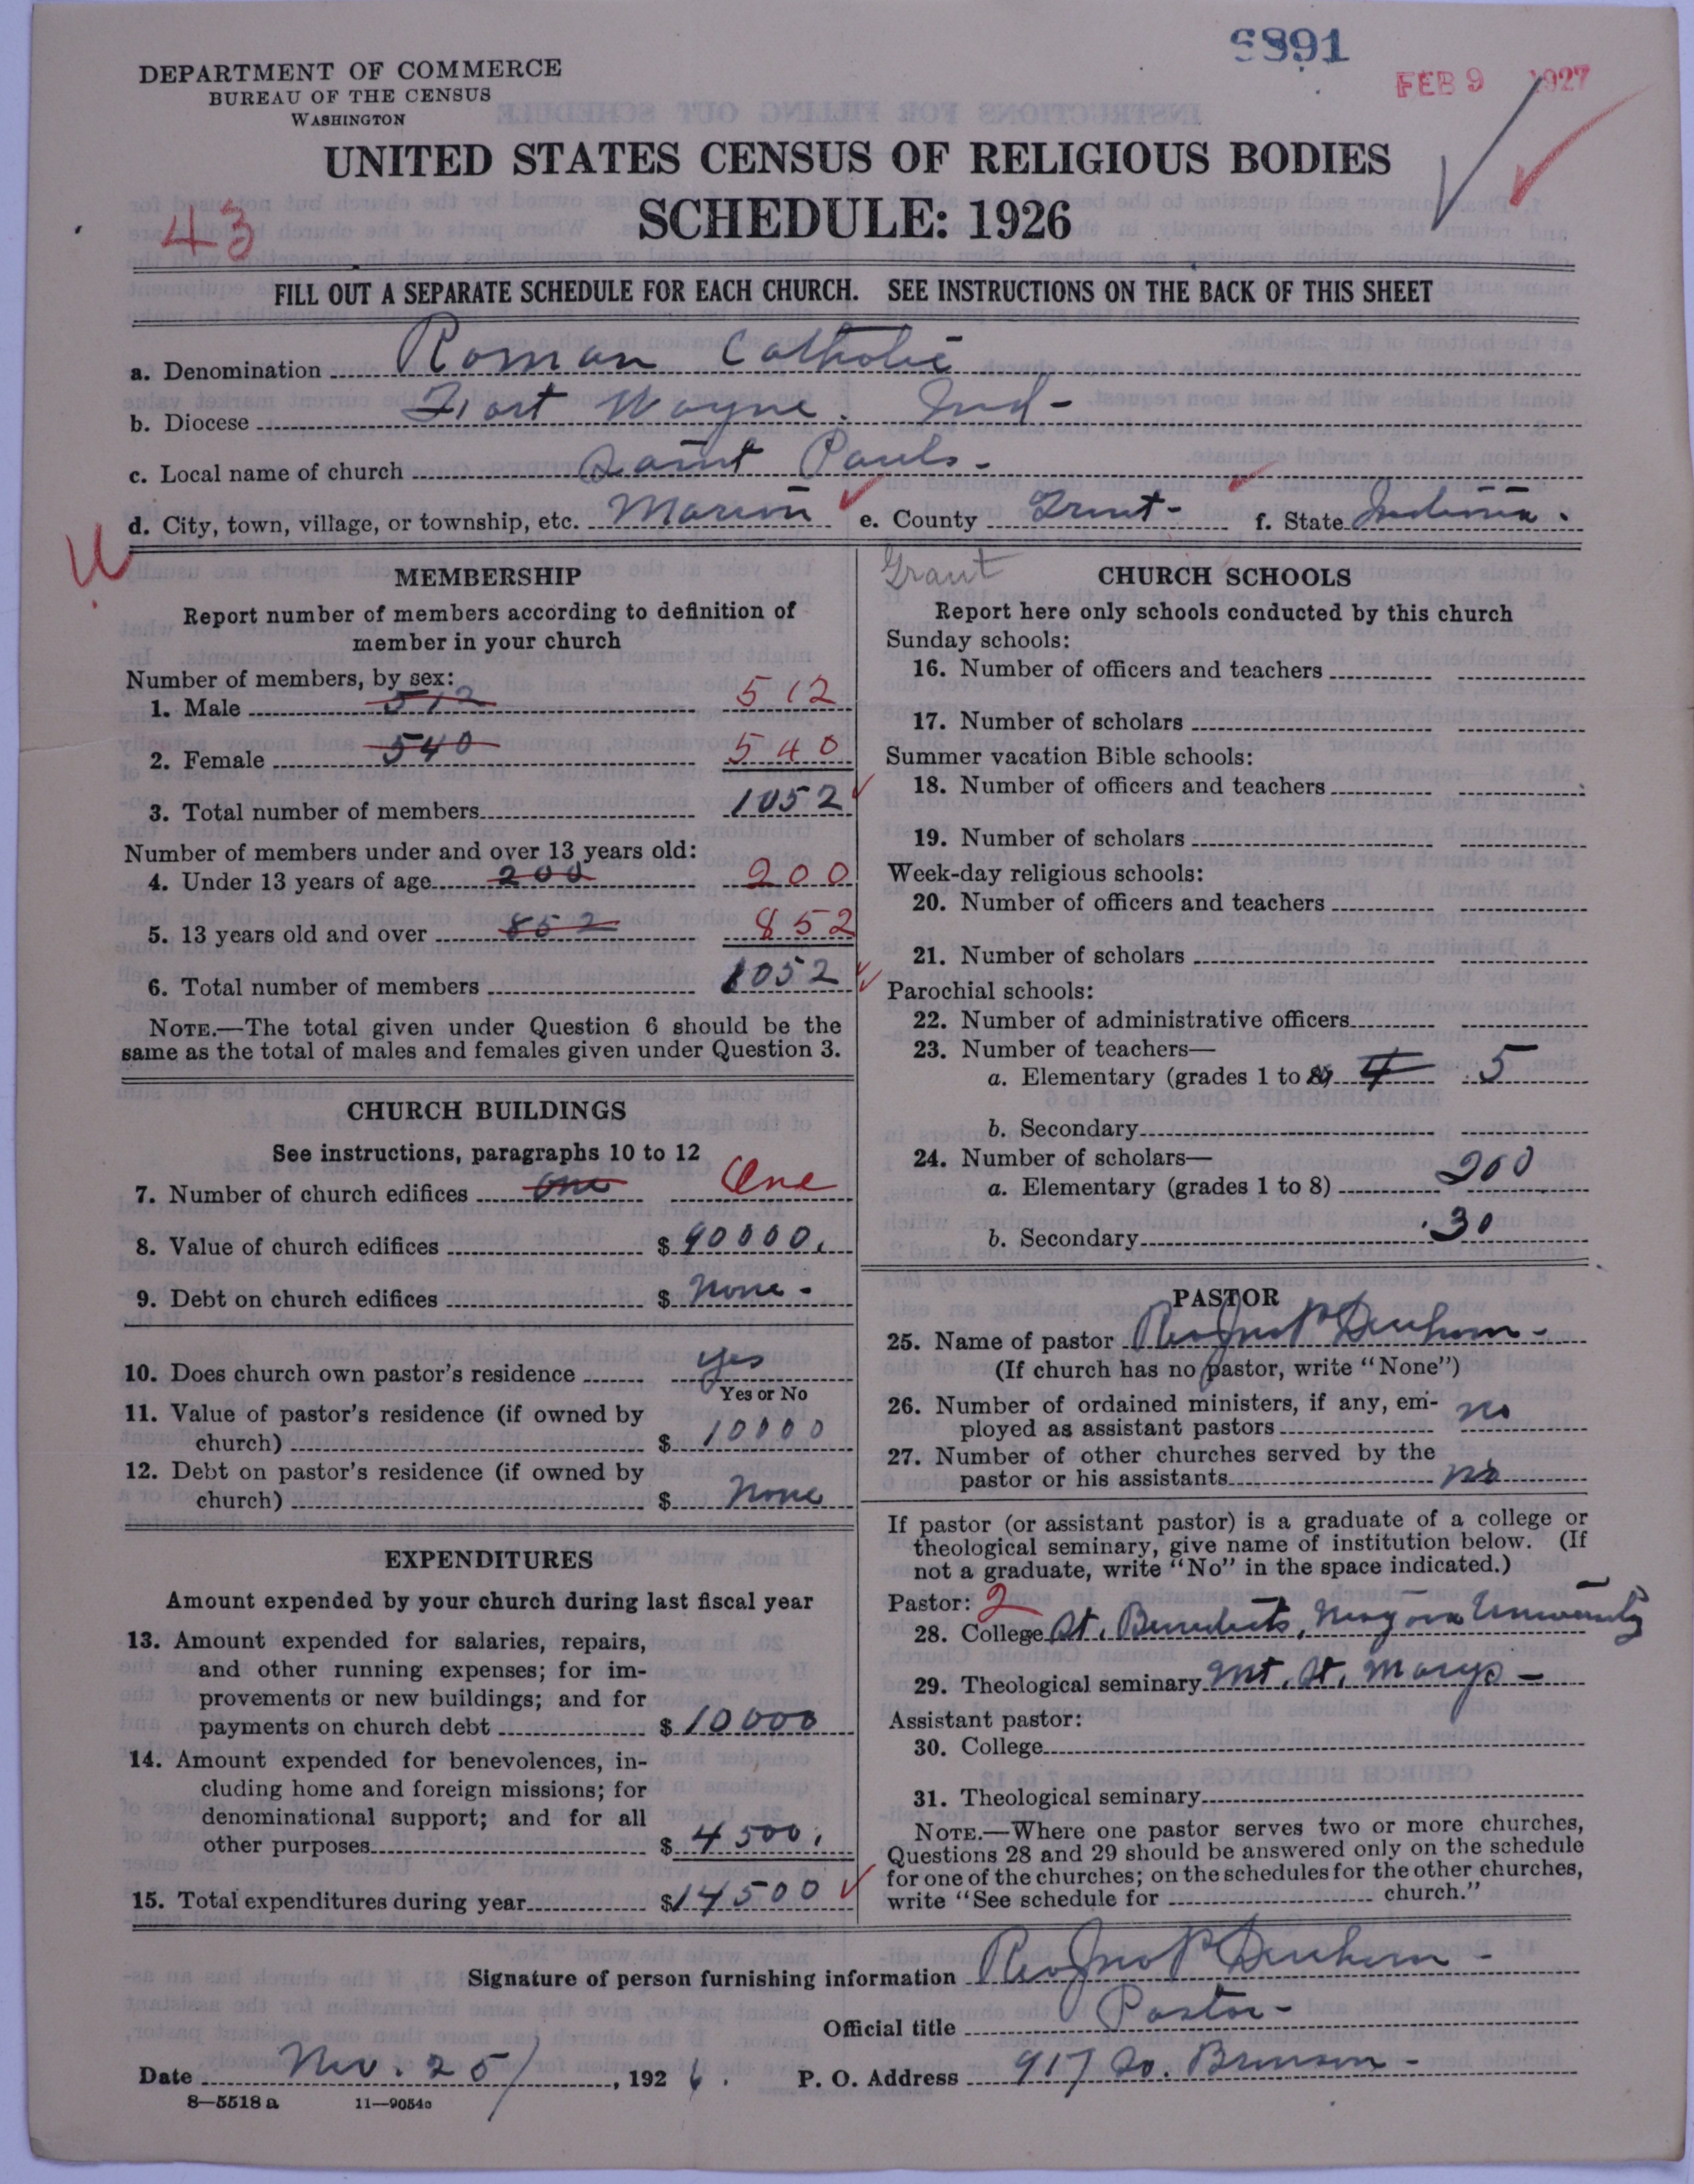 6891
DEPARTMENT OF COMMERCE
BUREAU OF THE CENSUS
WASHINGTON
FEB 9 1927
UNITED STATES CENSUS OF RELIGIOUS BODIES
SCHEDULE: 1926
43
FILL OUT A SEPARATE SCHEDULE FOR EACH CHURCH. SEE INSTRUCTIONS ON THE BACK OF THIS SHEET
a. Denomination Roman Catholic
b. Diocese Fort Wayne. Ind-
c. Local name of church Saint Pauls-
d. City, town, village, or township, etc. Marion e. County Grant- f. State Indiana.
MEMBERSHIP
Report number of members according to definition of
member in your church
Number of members, by sex:
1. Male 512 512
2. Female 540 540
3. Total number of members 1052
Number of members under and over 13 years old:
4. Under 13 years of age 200 200
5. 13 years old and over 852 852
6. Total number of members 1052
NOTE.—The total given under Question 6 should be the
same as the total of males and females given under Question 3.
CHURCH BUILDINGS
See instructions, paragraphs 10 to 12
7. Number of church edifices One One
8. Value of church edifices $ 90000.
9. Debt on church edifices $ None-
10. Does church own pastor's residence yes
Yes or No
11. Value of pastor's residence (if owned by
church) $ 10000
12. Debt on pastor's residence (if owned by
church) $ None
EXPENDITURES
Amount expended by your church during last fiscal year
13. Amount expended for salaries, repairs,
and other running expenses; for im-
provements or new buildings; and for
payments on church debt $ 10000
14. Amount expended for benevolences, in-
cluding home and foreign missions; for
denominational support; and for all
other purposes $ 4500.
15. Total expenditures during year $ 14500
Grant
CHURCH SCHOOLS
Report here only schools conducted by this church
Sunday schools:
16. Number of officers and teachers
17. Number of scholars
Summer vacation Bible schools:
18. Number of officers and teachers
19. Number of scholars
Week-day religious schools:
20. Number of officers and teachers
21. Number of scholars
Parochial schools:
22. Number of administrative officers
23. Number of teachers—
a. Elementary (grades 1 to 8) 4 5
b. Secondary
24. Number of scholars—
a. Elementary (grades 1 to 8) 200
b. Secondary 30
PASTOR
25. Name of pastor Rev Jno P
(If church has no pastor, write "None")
26. Number of ordained ministers, if any, em-
ployed as assistant pastors no
27. Number of other churches served by the
pastor or his assistants no
If pastor (or assistant pastor) is a graduate of a college or
theological seminary, give name of institution below. (If
not a graduate, write "No" in the space indicated.)
Pastor: 2
28. College St. Benedicts, University
29. Theological seminary Mt. St. Marys-
Assistant pastor:
30. College
31. Theological seminary
NOTE.—Where one pastor serves two or more churches,
Questions 28 and 29 should be answered only on the schedule
for one of the churches; on the schedules for the other churches,
write "See schedule for church."
Signature of person furnishing information Rev Jno P
Official title Pastor-
Date Nov. 25/, 1926. P. O. Address 917 So. Branson-
8—5518a 11—9054c